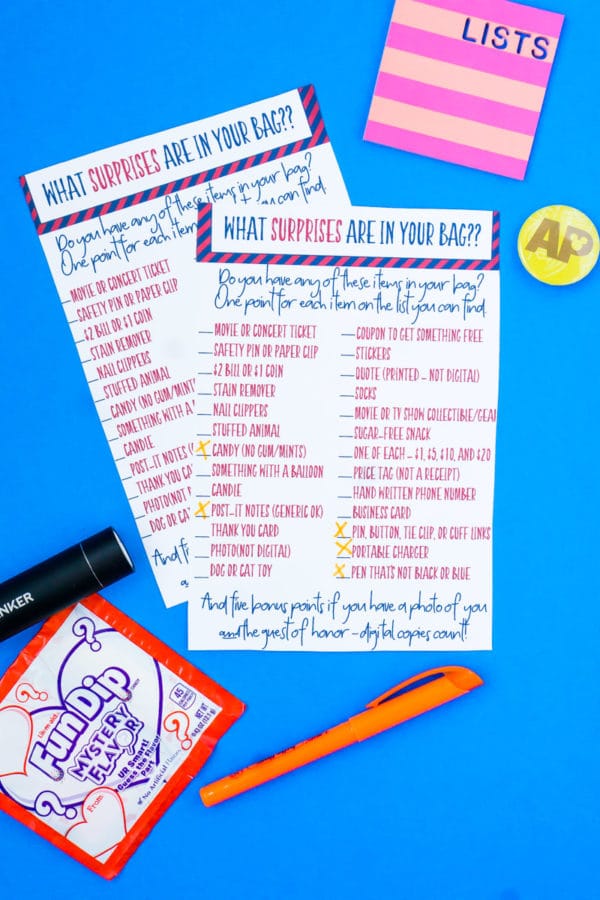 LISTS
WHAT SURPRISES ARE IN YOUR BAG??
Do you have any of these items in your bag?
One point for each item you can find.
MOVIE OR CONCERT TICKET
SAFETY PIN OR PAPER CLIP
$2 BILL OR $1 COIN
STAIN REMOVER
NAIL CLIPPERS
STUFFED ANIMAL
CANDY (NO GUM/MINTS
SOMETHING WITH A
CANDLE
POST-IT NOTES (
THANK YOU CA
PHOTO(NOT
DOG OR CAT
And five
AP
WHAT SURPRISES ARE IN YOUR BAG??
Do you have any of these items in your bag?
One point for each item on the list you can find.
__MOVIE OR CONCERT TICKET
__SAFETY PIN OR PAPER CLIP
__$2 BILL OR $1 COIN
__STAIN REMOVER
__NAIL CLIPPERS
__STUFFED ANIMAL
X CANDY (NO GUM/MINTS)
__SOMETHING WITH A BALLOON
__CANDLE
X POST-IT NOTES (GENERIC OK)
__THANK YOU CARD
__PHOTO(NOT DIGITAL)
__DOG OR CAT TOY
__COUPON TO GET SOMETHING FREE
__STICKERS
__QUOTE (PRINTED - NOT DIGITAL)
__SOCKS
__MOVIE OR TV SHOW COLLECTIBLE/GEAR
__SUGAR-FREE SNACK
__ONE OF EACH - $1, $5, $10, AND $20
__PRICE TAG (NOT A RECEIPT)
__HAND WRITTEN PHONE NUMBER
__BUSINESS CARD
X PIN, BUTTON, TIE CLIP, OR CUFF LINKS
X PORTABLE CHARGER
X PEN THAT'S NOT BLACK OR BLUE
And five bonus points if you have a photo of you
and the guest of honor - digital copies count!
NKER
Lik-m-aid
Fun Dip
MYSTERY
FLAVOR!
UR Smart!
Guess the Flavor
Part
From
45
NET WT.